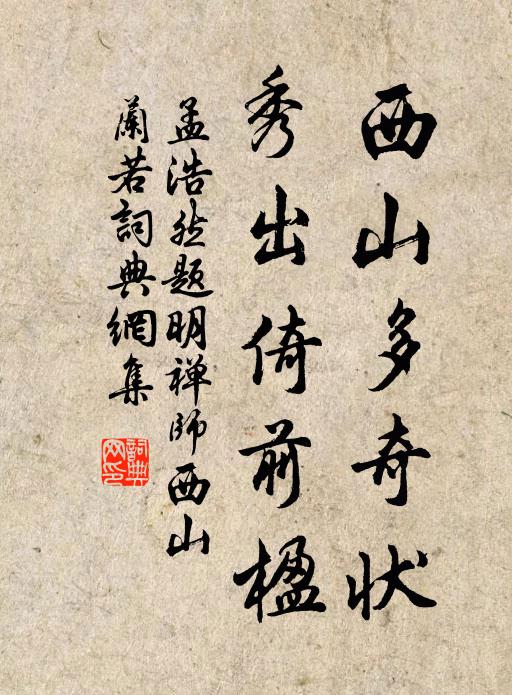 西山多奇状
秀出倚前楹
孟浩然题明禅师西山
蘭若詞典網集
詞典网印